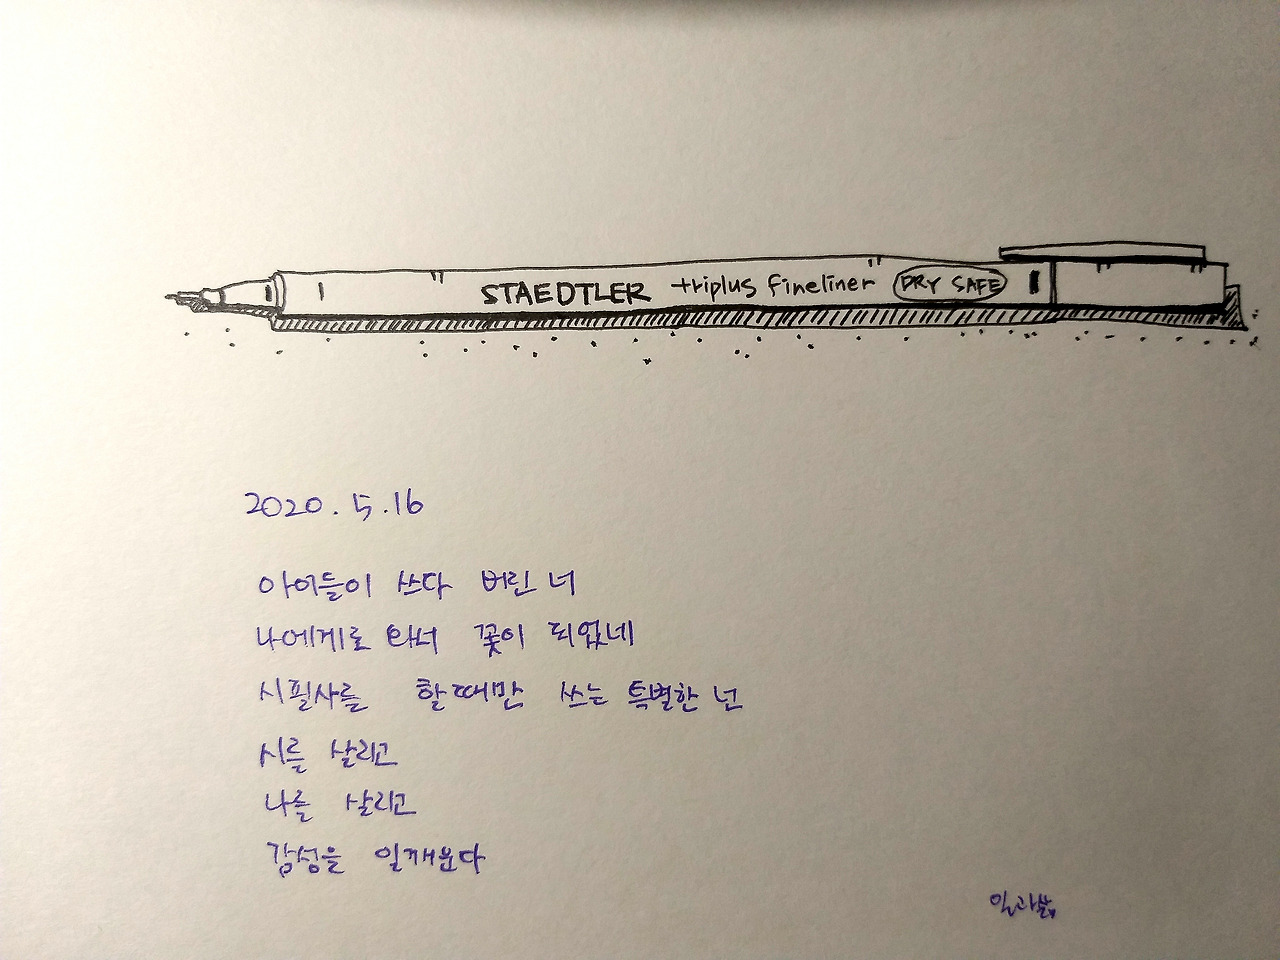 STAEDTLER triplus fineliner DRY SAFE
2020.5.16
아이들이 쓰다 버린 너
나에게로 와서 꽃이 되었네
시필사를 할때만 쓰는 특별한 넌
시를 살리고
나를 살리고
감성을 일깨운다